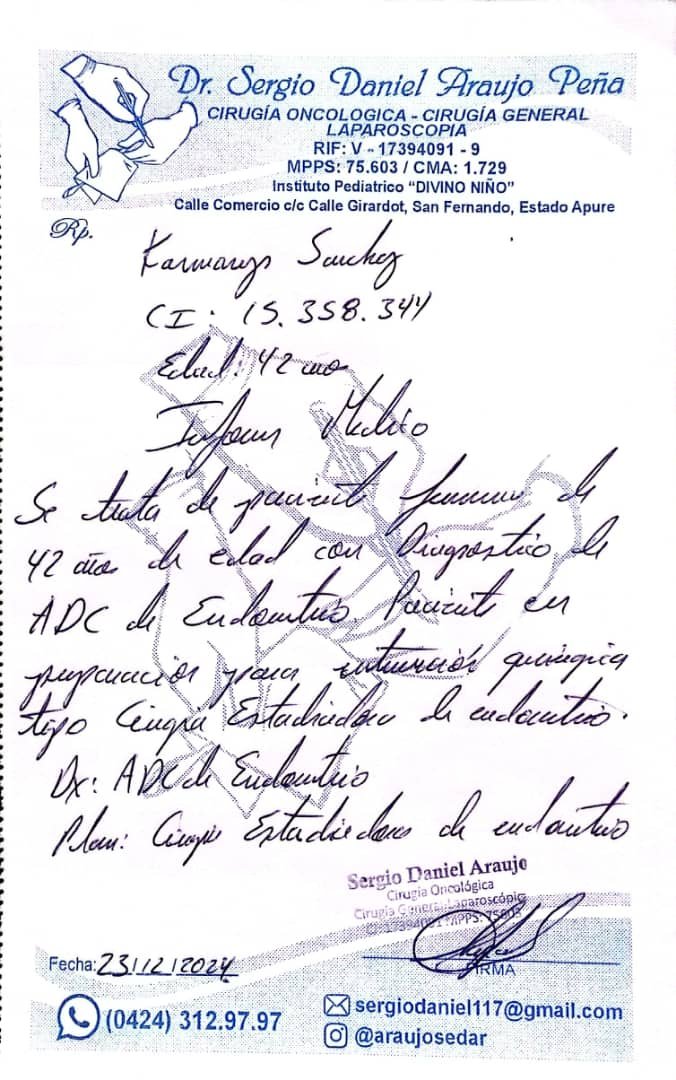 Dr. Sergio Daniel Araujo Peña
CIRUGÍA ONCOLOGICA - CIRUGÍA GENERAL
LAPAROSCOPIA
RIF: V - 17394091 - 9
MPPS: 75.603 / CMA: 1.729
Instituto Pediatrico "DIVINO NIÑO"
Calle Comercio c/c Calle Girardot, San Fernando, Estado Apure
Rp.
Sanchez
CI: 15.358.344
Edad: 42 años
Informe Medico
Se trata de paciente femenino de
42 años de edad con Diagnostico de
ADC de Endometrio. Paciente en
preparación para intervención quirurgica
tipo Cirugía Estadiadora de endometrio.
Dx: ADC de Endometrio
Plan: Cirugía Estadiadora de endometrio
Sergio Daniel Araujo
Cirugía Oncológica
Cirugía General Laparoscópic
FIRMA
Fecha: 23/12/2024
(0424) 312.97.97
sergiodaniel117@gmail.com
@araujosedar